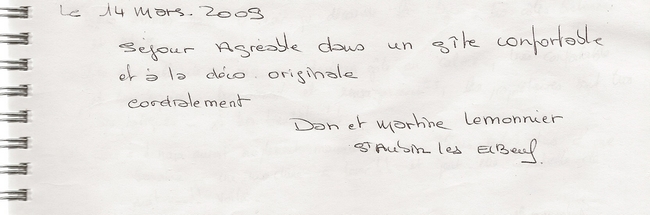 Le 14 mars. 2009
Séjour Agréable dans un gîte confortable
et à la déco originale
cordialement
Dan et Martine Lemonnier
St Aubin les Elbeuf